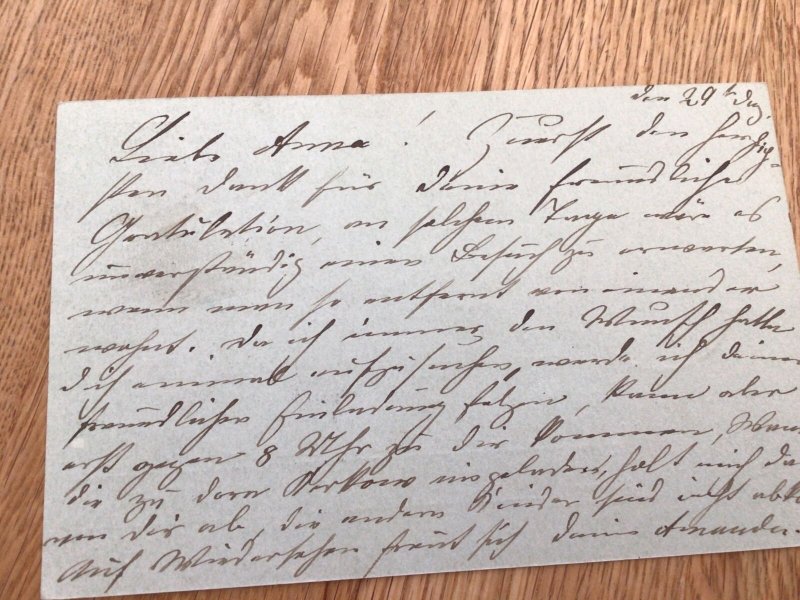 den 29ten Dez.
Liebe Anna! Zuerst den herzlich-
sten Dank für deine freundliche
Gratulation, an solchem Tage wäre es
unverständig einen Besuch zu erwarten,
wenn man so entfernt von einander
wohnt. Da ich immer den Wunsch hatte
dich einmal aufzusuchen, werde ich deiner
freundlichen Einladung folgen, kann aber
erst gegen 8 Uhr zu dir kommen,
die zu eingeladen, holt mich
von dir ab, die andern Kinder sind nicht
Auf Wiedersehen freut sich deine Amanda.